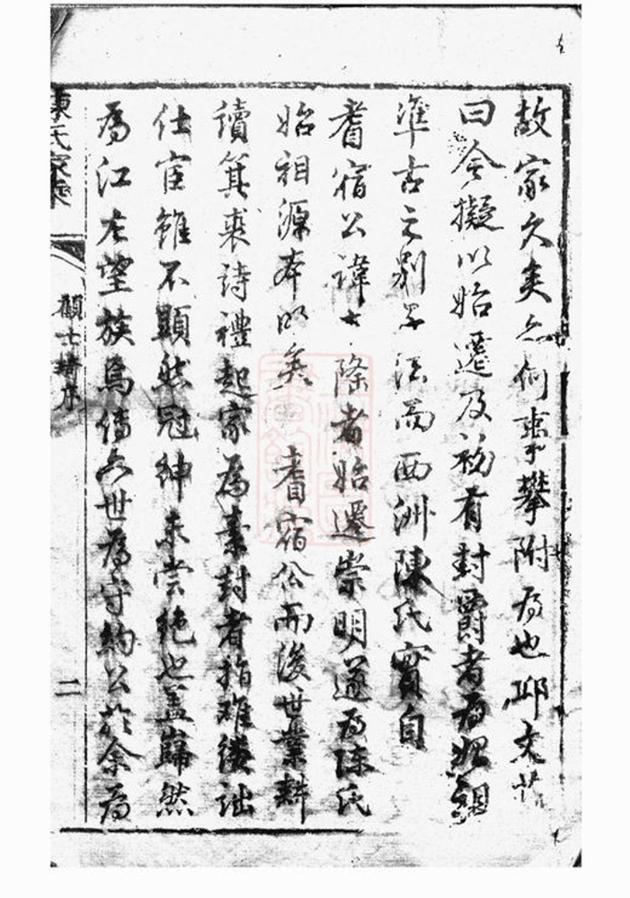 故家久矣亦何事攀附為也邱文莊
曰今擬以始遷及初有封爵者為始祖
準古之別子法而西洲陳氏實自
耆宿公諱士隆者始遷崇明遂為陳氏
始祖源本明矣耆宿公而後世業耕
讀箕裘詩禮起家為素封者指難僂詘
仕宦雖不顯然冠紳未嘗絕也蓋巋然
為江左望族焉傳六世為守約公於余為
陳氏家乘
顧士璘序
二